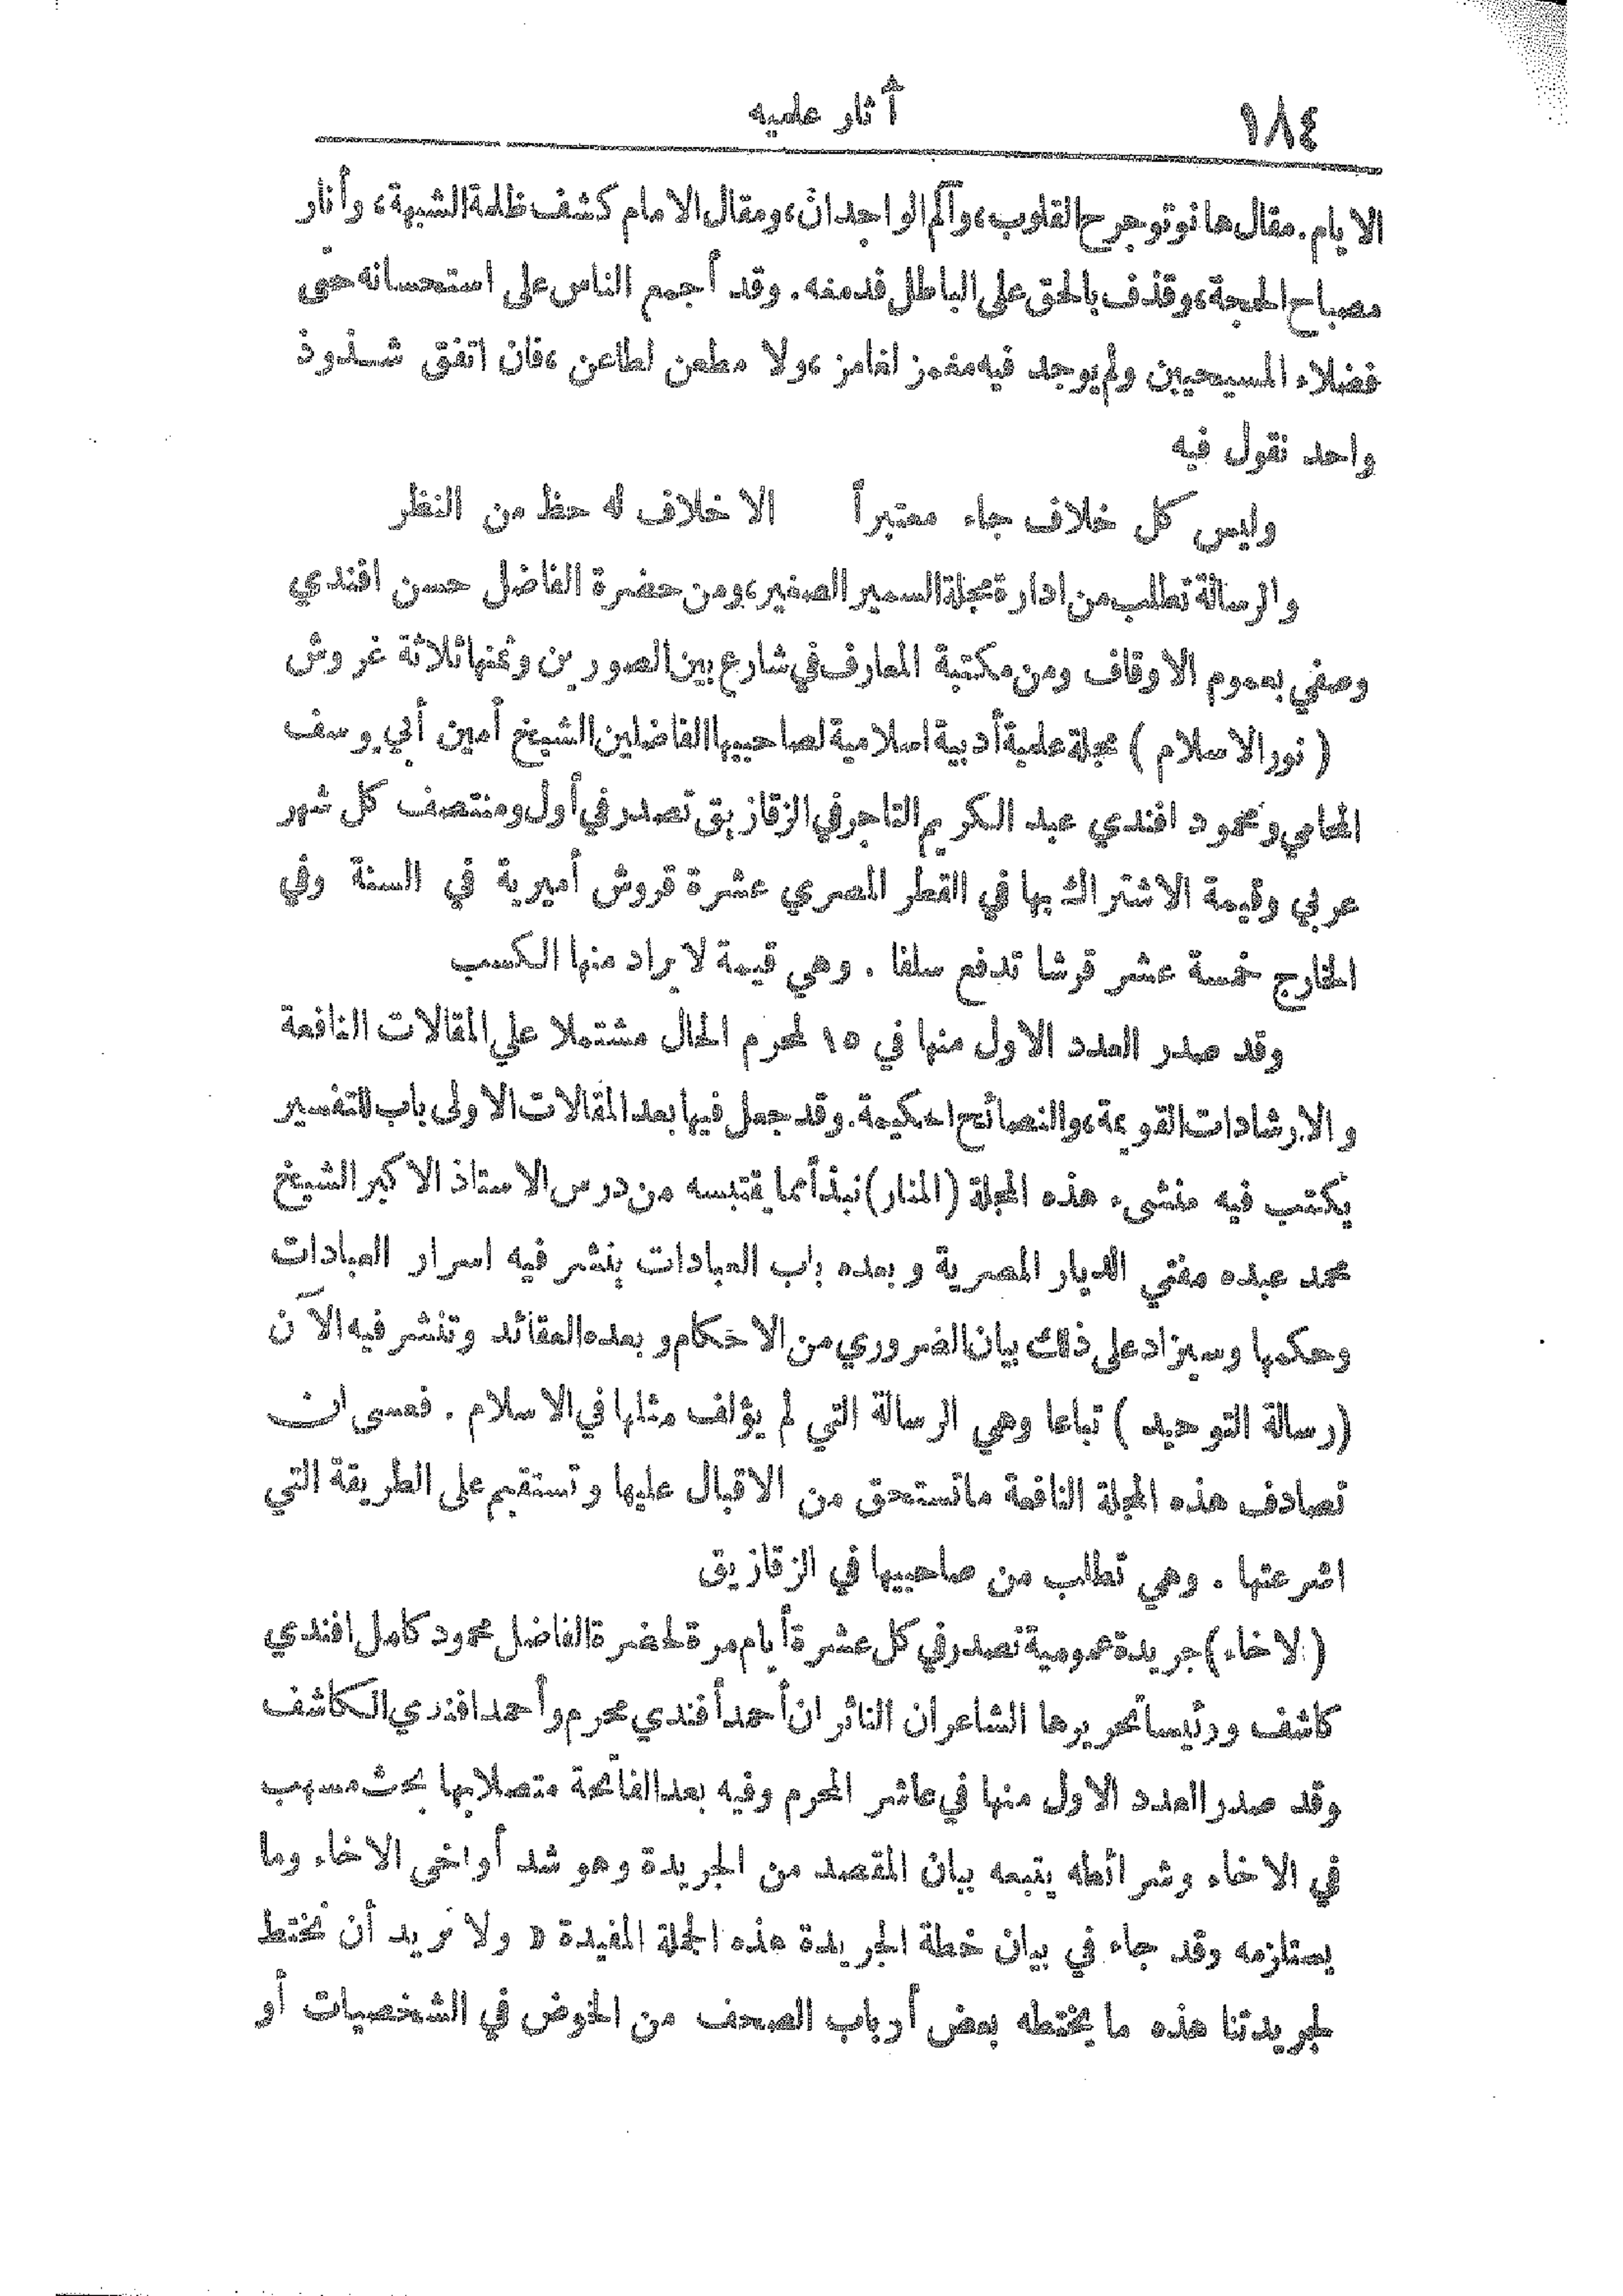 ١٨٤
آثار علميه
الايام. مقال هانوتو جرح القلوب، وآلم الواجدان، ومقال الامام كشف ظلمة الشبهة، وأنار
مصباح الحجة، وقذف بالحق على الباطل فدمغه. وقد أجمع الناس على استحسانه حتى
فضلاء المسيحيين ولم يوجد فيه مغمز لغامز، ولا مطعن لطاعن، فان اتفق شذوذ
واحد نقول فيه
وليس كل خلاف جاء معتبراً الا خلاف له حظ من النظر
والرسالة تطلب من ادارة مجلة السمير الصغير، ومن حضرة الفاضل حسن افندي
وصفي بعموم الاوقاف ومن مكتبة المعارف في شارع بين الصورين وثمنها ثلاثة غروش
( نور الاسلام ) مجلة علمية أدبية اسلامية لصاحبيها الفاضلين الشيخ أمين أبي يوسف
المحامي ومحمود افندي عبد الكريم التاجر في الزقازيق تصدر في أول ومنتصف كل شهر
عربي وقيمة الاشتراك بها في القطر المصري عشرة قروش أميرية في السنة وفي
الخارج خمسة عشر قرشا تدفع سلفا . وهي قيمة لا يراد منها الكسب
وقد صدر العدد الاول منها في ١٥ لمحرم الحال مشتملا على المقالات النافعة
والارشادات القويمة، والنصائح الحكيمة. وقد جعل فيها بعد المقالات الاولى باب للتفسير
يكتب فيه منشىء هذه المجلة (المنار) نبذاً مما يقتبسه من درس الاستاذ الاكبر الشيخ
محمد عبده مفتي الديار المصرية وبعده باب العبادات ينشر فيه اسرار العبادات
وحكمها وسيزاد على ذلك بيان الضروري من الاحكام وبعده العقائد وتنشر فيه الآن
(رسالة التوحيد ) تباعا وهي الرسالة التي لم يؤلف مثلها في الاسلام . فعسى ان
تصادف هذه المجلة النافعة ما تستحق من الاقبال عليها وتستقيم على الطريقة التي
اشرعتها . وهي تطلب من صاحبيها في الزقازيق
(الاخاء) جريدة عمومية تصدر في كل عشرة أيام مرة لحضرة الفاضل محمود كامل افندي
كاشف ورئيسا تحريرها الشاعران الناثران أحمد أفندي محرم وأحمد افندي الكاشف
وقد صدر العدد الاول منها في عاشر المحرم وفيه بعد الفاتحة متصلا بها بحث مسهب
في الاخاء وشرائطه يتبعه بيان المقصد من الجريدة وهو شد أواخى الاخاء وما
يستلزمه وقد جاء في بيان خطة الجريدة هذه الجملة المفيدة « ولا نريد أن نختط
لجريدتنا هذه ما يختطه بعض أرباب الصحف من الخوض في الشخصيات أو